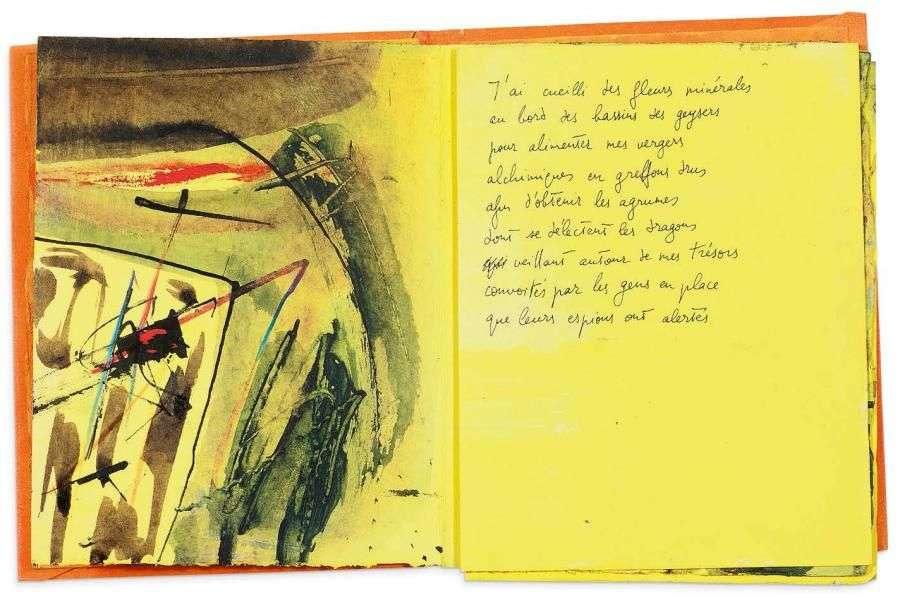 J'ai cueilli des fleurs minérales
au bord des bassins des geysers
pour alimenter mes vergers
alchimiques en greffons drus
afin d'obtenir les agrumes
dont se délectent les dragons
veillant autour de mes trésors
convoités par les gens en place
que leurs espions ont alertés